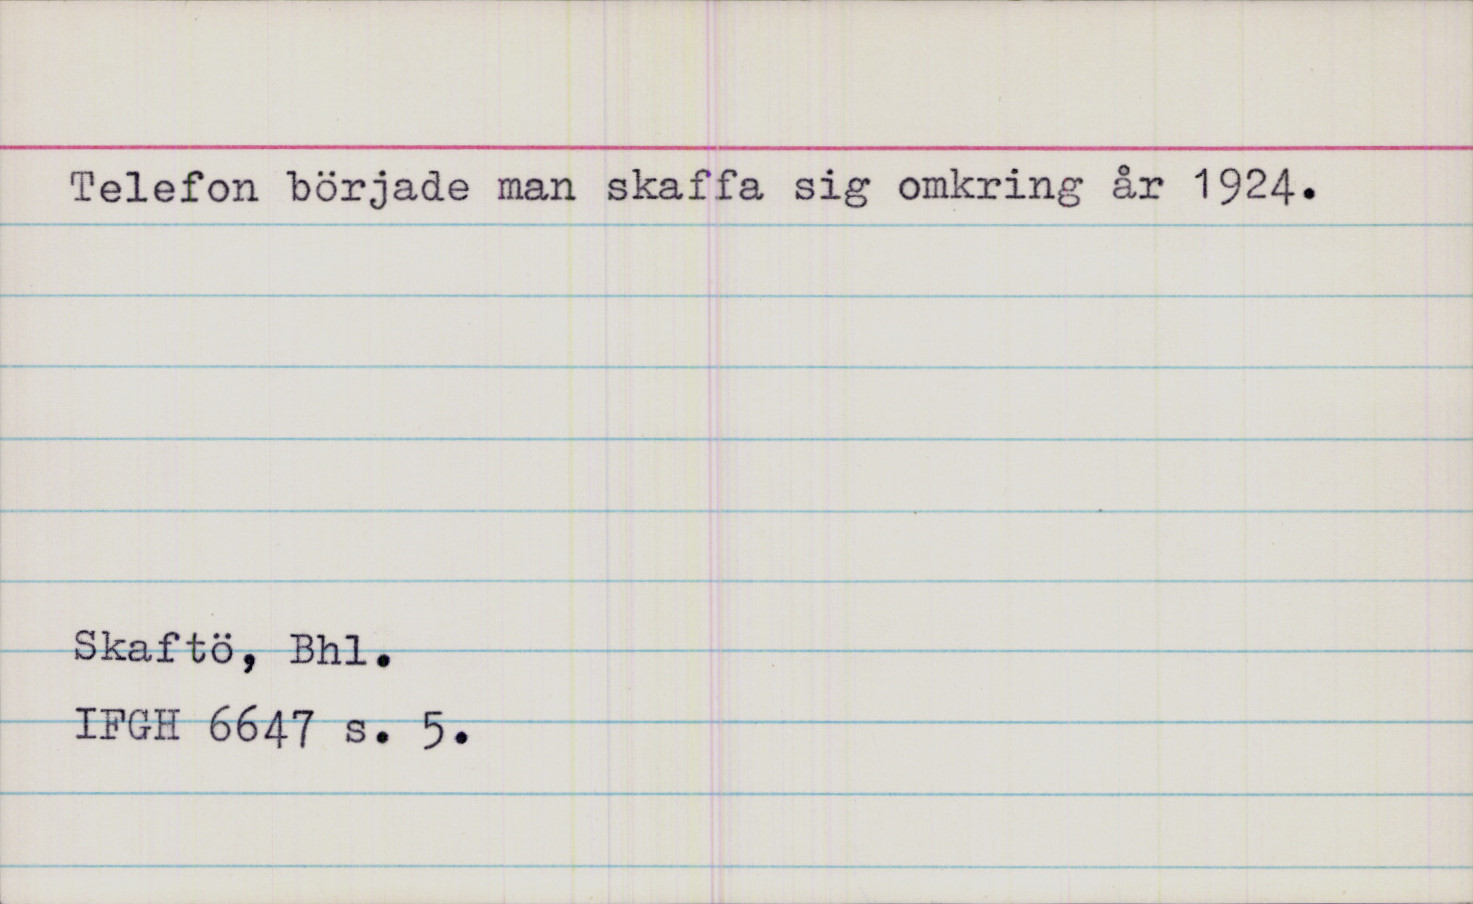 Telefon började man skaffa sig omkring år 1924.
Skaftö, Bhl.
IFGH 6647 s. 5.